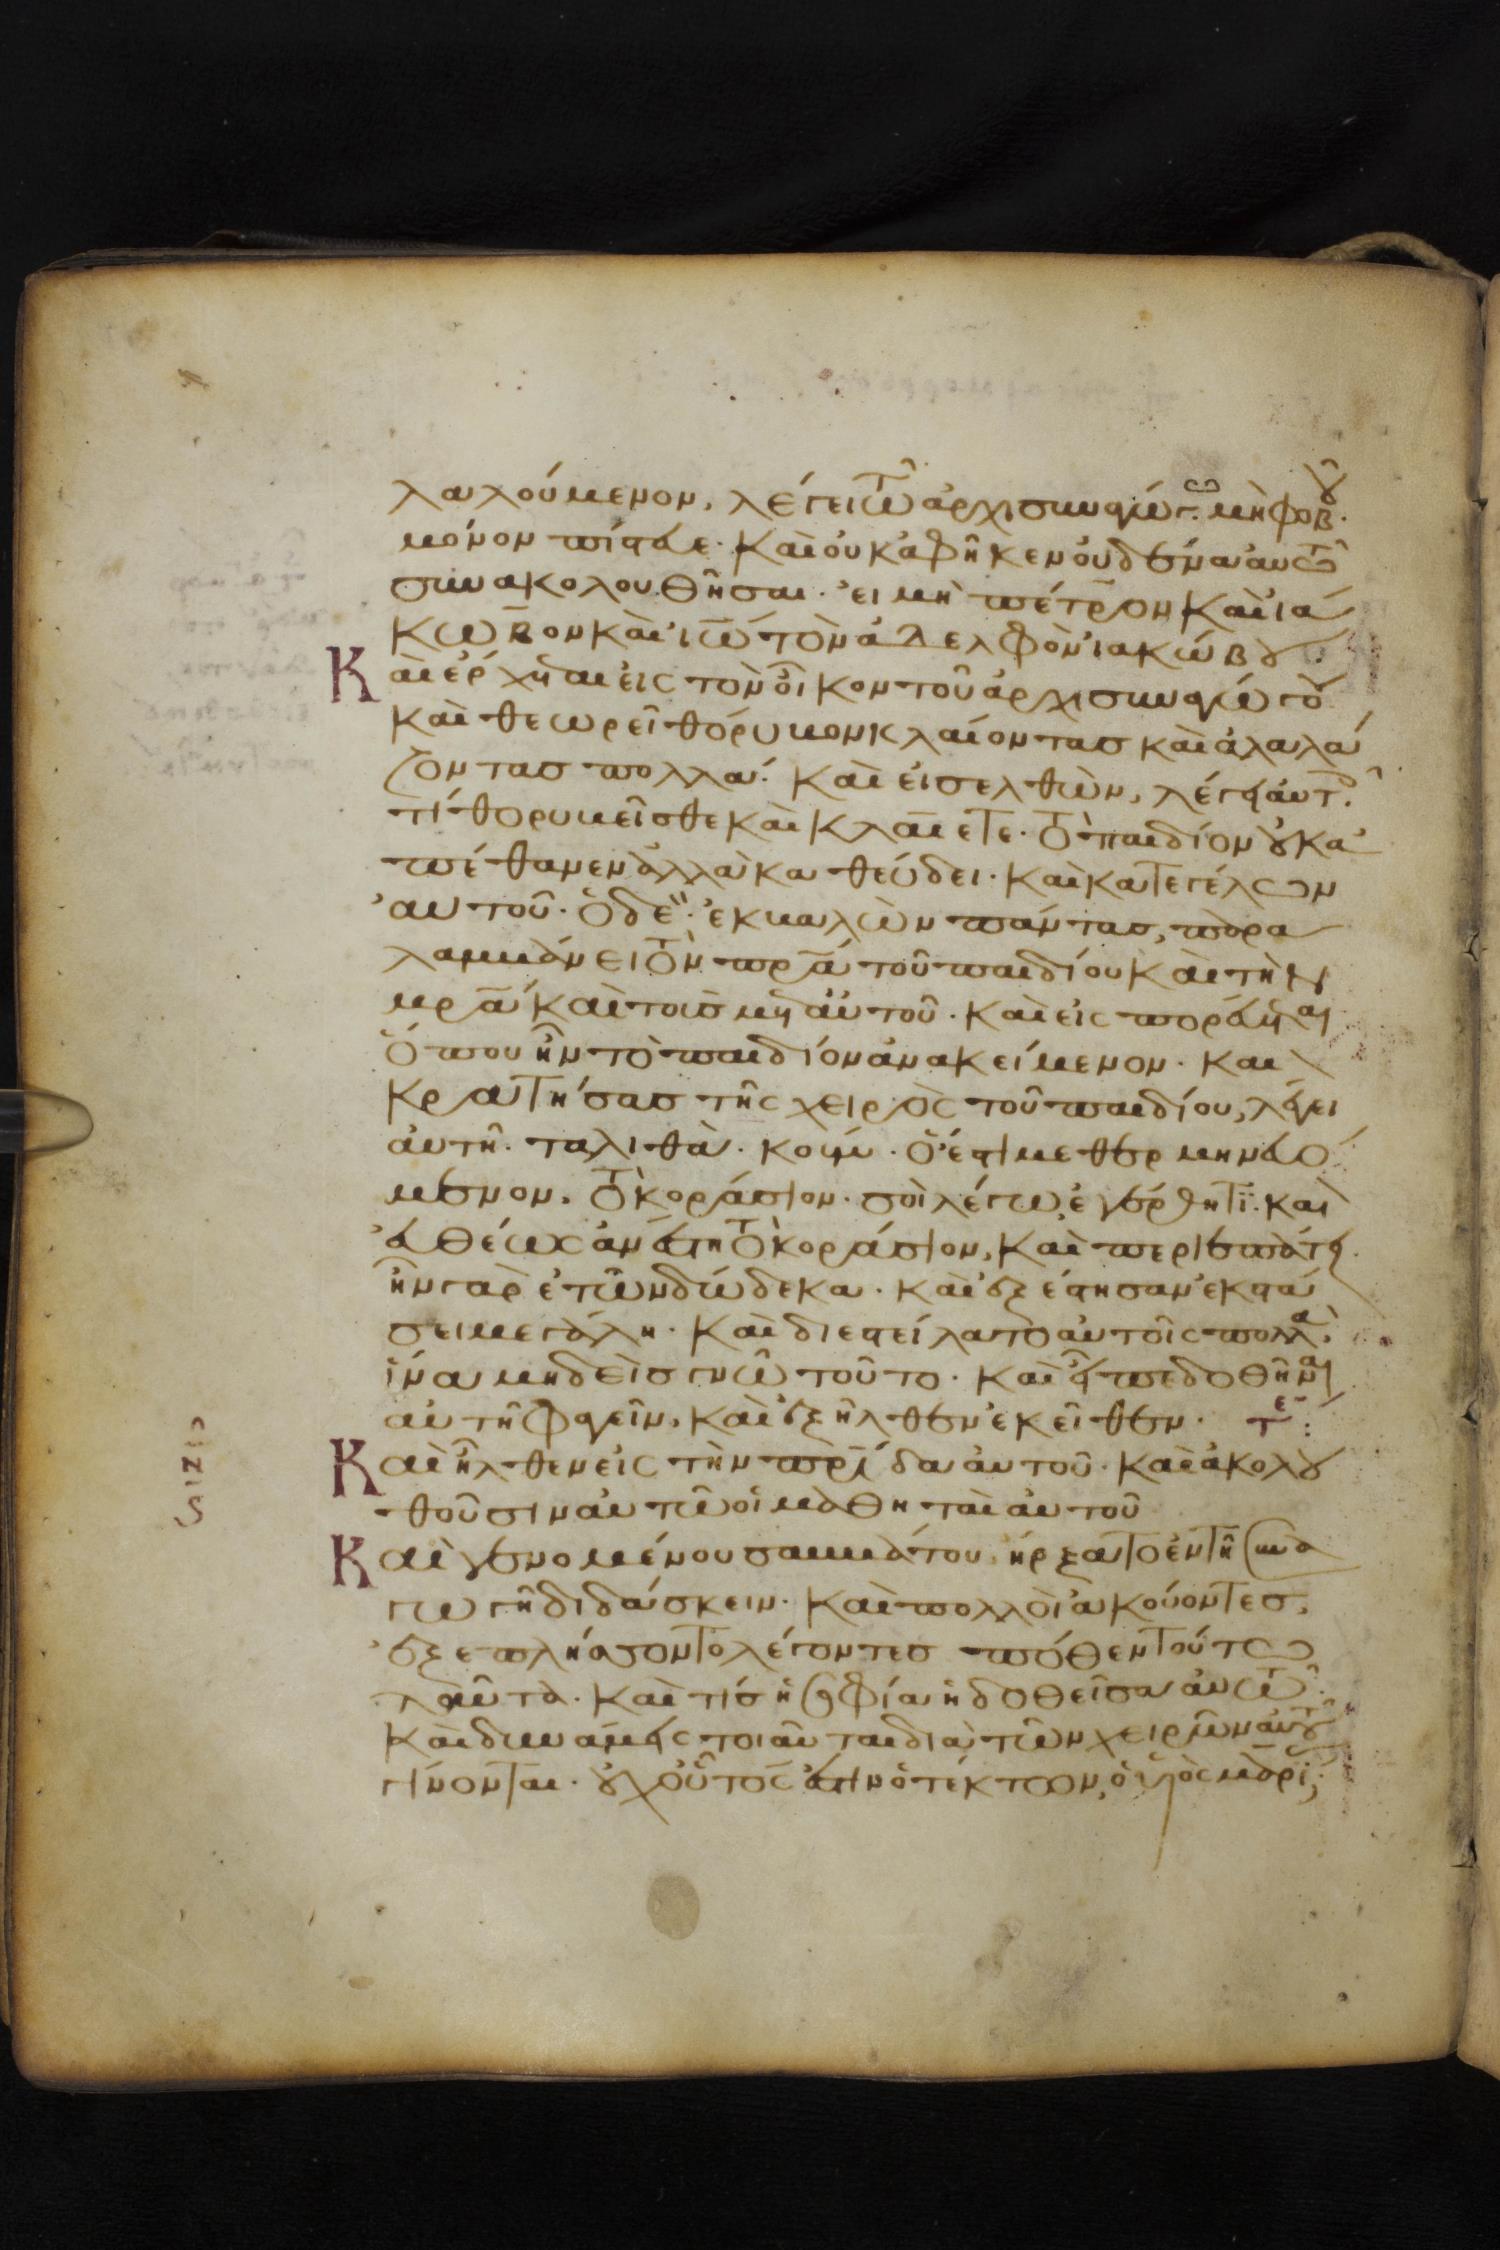 λαλούμενον, λέγει τῶ ἀρχισυναγώγ· μὴ φοβοῦ·
μόνον πίστευε· Καὶ οὐκ ἀφῆκεν οὐδένα αὐτῶ
συνακολουθῆσαι· εἰ μὴ πέτρον Καὶ ἰά
κωβον Καὶ ἰω τὸν ἀδελφὸν ἰακώβου·
Καὶ ἔρχεται εἰς τὸν οἶκον τοῦ ἀρχισυναγώγου
Καὶ θεωρεῖ θόρυβον κλαίοντας καὶ ἀλαλά
ζοντας πολλά· Καὶ εἰσελθὼν, λέγει αὐτοῖς·
τί θορυβεῖσθε Καὶ κλαίετε· τὸ παιδίον οὐκ ἀ
πέθανεν ἀλλὰ καθεύδει· Καὶ κατεγέλων
αὐτοῦ· ὁ δὲ· ἐκβαλὼν πάντας, παρα
λαμβάνει τὸν πρα τοῦ παιδίου Καὶ τὴν
μρα Καὶ τοὺς μετ αὐτοῦ· Καὶ εἰσπορεύεται
ὅπου ἦν τὸ παιδίον ἀνακείμενον· Καὶ
Κρατήσας τῆς χειρὸς τοῦ παιδίου, λέγει
αὐτῆ· ταλιθὰ· κουμι· ὅ ἐστι μεθερμηνευό
μενον, τὸ κοράσιον· σοὶ λέγω, ἐγέρθητι· καὶ
εὐθέως ἀνέστη τὸ κοράσιον, Καὶ περιεπάτει·
ἦν γὰρ ἐτῶν δώδεκα· Καὶ ἐξέστησαν ἐκστά
σει μεγάλη· Καὶ διεστείλατο αὐτοῖς πολλὰ,
ἵνα μηδεὶς γνῶ τοῦτο· Καὶ εἶπε δοθῆναι
αὐτῆ φαγεῖν, Καὶ ἐξῆλθεν ἐκεῖθεν· τε:
Καὶ ἦλθεν εἰς τὴν πρίδα αὐτοῦ· Καὶ ἀκολου
θοῦσιν αὐτῶ οἱ μαθηταὶ αὐτοῦ
Καὶ γενομένου σαββάτου ἤρξατο ἐν τῆ συνα
γωγῆ διδάσκειν· Καὶ πολλοὶ ἀκούοντες,
ἐξεπλήσσοντο λέγοντες πόθεν τούτω
ταῦτα· Καὶ τίς ἡ σοφία ἡ δοθεῖσα αὐτῶ·
Καὶ δυνάμεις τοιαῦται διὰ τῶν χειρῶν αὐτοῦ
γίνονται· οὐχ οὗτός ἐστιν ὁ τέκτων, ὁ υἱὸς μαρίας